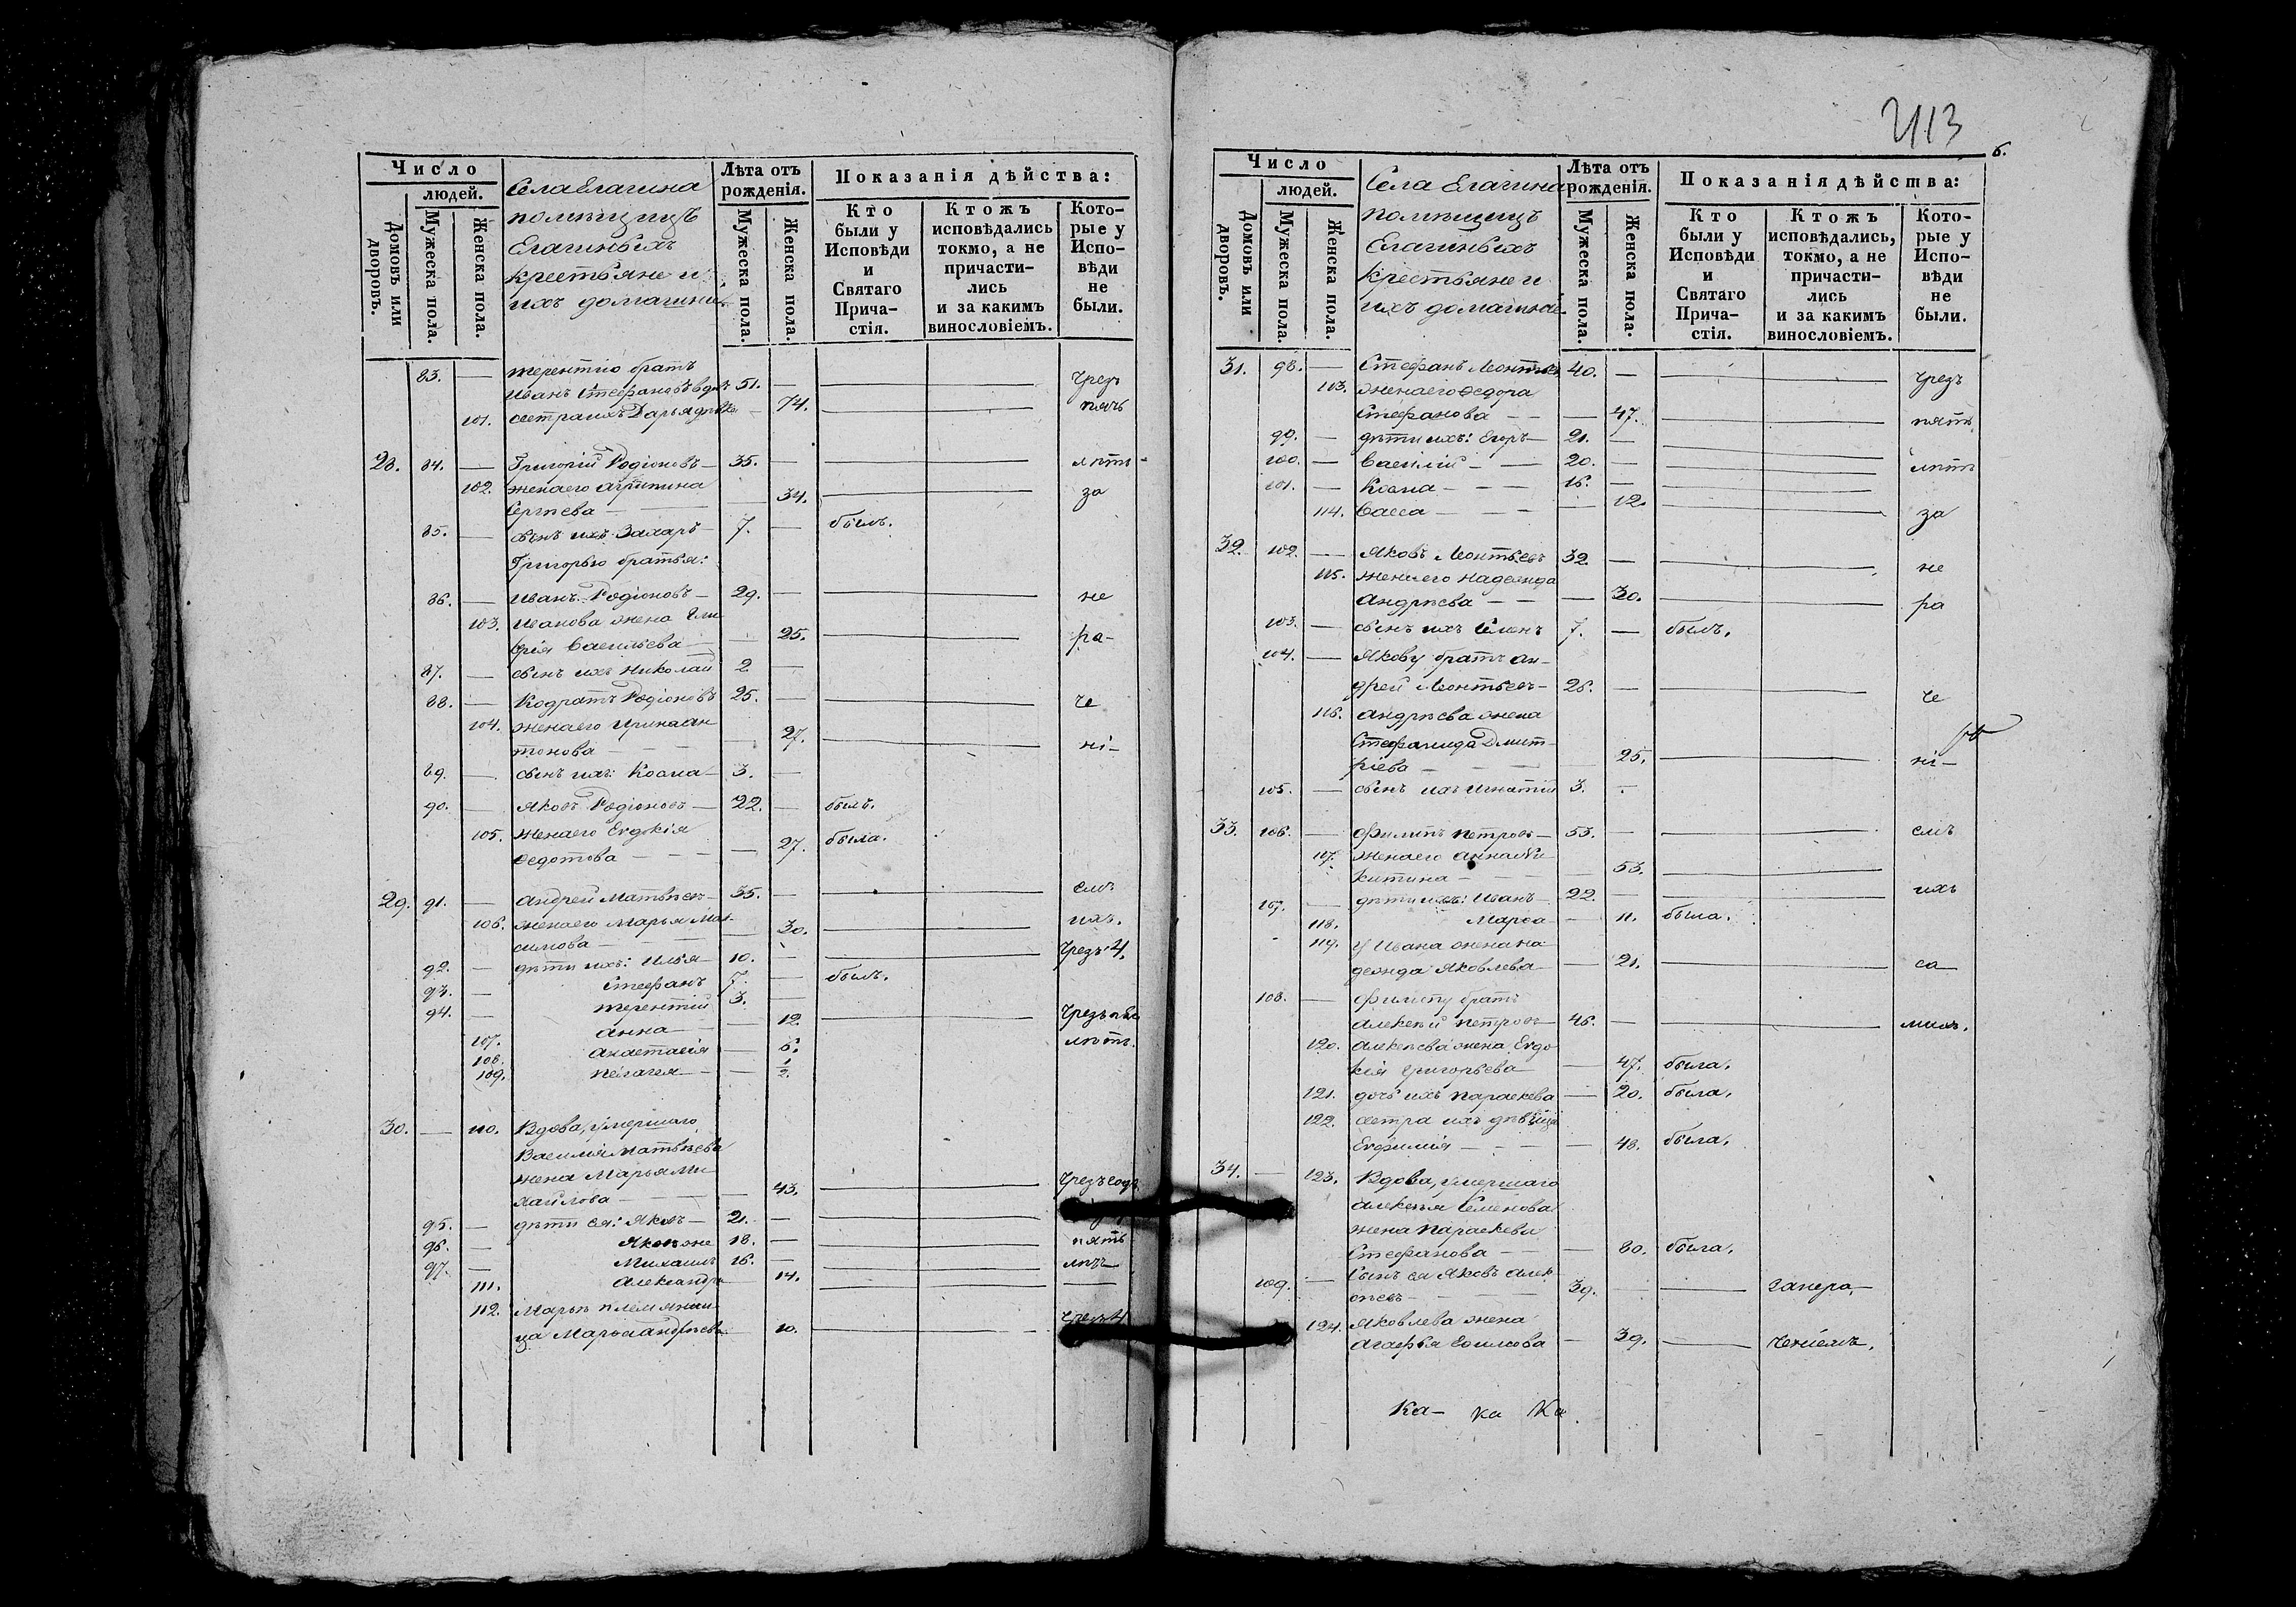 Число
людей.
Домовъ или дворовъ.
Мужеска пола.
Женска пола.
Села Елагина
помѣщицъ
Елагиныхъ
крестьяне и
ихъ домашніе
Лѣта отъ рожденія.
Мужеска пола.
Женска пола.
Показанія дѣйства:
Кто были у Исповѣди и Святаго Причастія.
Ктожъ исповѣдались токмо, а не причастились и за какимъ винословіемъ.
Которые у Исповѣди не были.
83. — Терентію братъ
Иванъ Стефановъ вдов 51. — чрезъ
101. сестра ихъ Дарья дѣвка — 74. пять
28. 84. — Григорій Родіоновъ — 35. — лѣтъ
102. жена его Агрипина
Сергѣева — 34. за
85. — сынъ ихъ Захаръ — 7. — былъ.
Григорью братья:
86. — Иванъ Родіоновъ — 29. — не
103. Иванова жена Гли
керія Васильева — 25. ра-
87. — сынъ ихъ Николай 2 —
88. — Кодратъ Родіоновъ 25. — че
104. жена его Ирина Ан
тонова — 27. ні-
89. — сынъ ихъ: Козма — 3. —
90. — Яковъ Родіоновъ — 22. — былъ.
105. жена его Евдокія
Федотова — — 27. была.
29. 91. — Андрей Матвѣевъ — 35. — емъ
106. жена его Марья Мак-
симова — 30. ихъ.
92. — дѣти ихъ: Илья — 10. — чрезъ 4.
93. — Стефанъ 7. — былъ.
94. — Терентій 3. —
107. Анна — 12. чрезъ
108. Анастасія — 6. лѣтъ.
109. Пелагея — — 1/2.
30. — 110. Вдова, умершаго
Василія Матвѣева
жена Марья Ми
хайлова — — 43. чрезъ
95. — дѣти ея: Яковъ — 21. —
96. — Яковъ же 18. — пять
97. — Михаилъ 16. — лѣтъ
111. Александра 14. —
112. Марьѣ племянни
ца Марья Андрѣева 10. чрезъ 4
413
6.
Число
людей.
Домовъ или дворовъ.
Мужеска пола.
Женска пола.
Села Елагина
помѣщицъ
Елагиныхъ
крестьяне и
ихъ домашніе
Лѣта отъ рожденія.
Мужеска пола.
Женска пола.
Показанія дѣйства:
Кто были у Исповѣди и Святаго Причастія.
Ктожъ исповѣдались, токмо, а не причастились и за какимъ винословіемъ.
Которые у Исповѣди не были.
31. 98. — Стефанъ Леонтьев 40. — чрезъ
113. жена его Федора
Стефанова — — — 47. пять
99. — дѣти ихъ: Егоръ — 21. —
100. — Василій — — 20. — лѣтъ
101. — Козма — — — 16. —
114. Васса — — — — 12. за
32. 102. — Яковъ Леонтьевъ 32. — не
115. жена его Надежда
Андрѣева — — — 30. ра
103. — сынъ ихъ Семенъ 7. — былъ.
104. — Якову братъ Ан-
дрей Леонтьевъ — 26. — че
116. Андрѣева жена
Стефанида Дмит-
ріева — 25. ні-
105. — сынъ ихъ Игнатій 3.
33. 106. — Филипъ Петровъ — 53. — емъ
117. жена его Анна Ни
китина — 53.
107. — дѣти ихъ: Иванъ — 22. — ихъ
118. Марѳа — 11. была.
119. у Ивана жена На
дежда Яковлева — 21. са
108. — Филипу братъ
Алексѣй Петровъ — 46. — михъ.
120. Алексѣева жена Евдо
кія Григорьева — 47. была.
121. дочь ихъ Параскева — 20. была.
122. сестра ихъ дѣвица
Евфимія — — — — 48. была.
34. — 123. Вдова, умершаго
Алексѣя Семенова
жена Параскева
Стефанова — — — 80. была.
109. — Сынъ ея Яковъ Алек
сѣевъ — 39. —
124. Яковлева жена
Агафья — 39. ченіемъ.
Ка- ка Ка